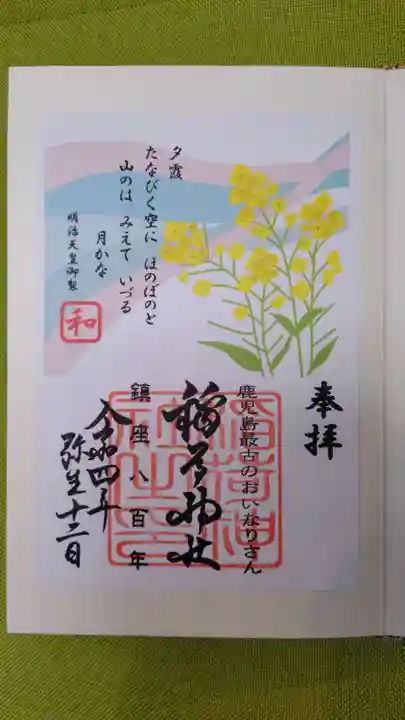 夕霞
たなびく空に ほのぼのと
山のは みえて いづる
月かな
明治天皇御製
和
奉拝
鹿児島最古のおいなりさん
稲荷神社
稲荷神社之印
鎮座八百年
令和四年
弥生十二日